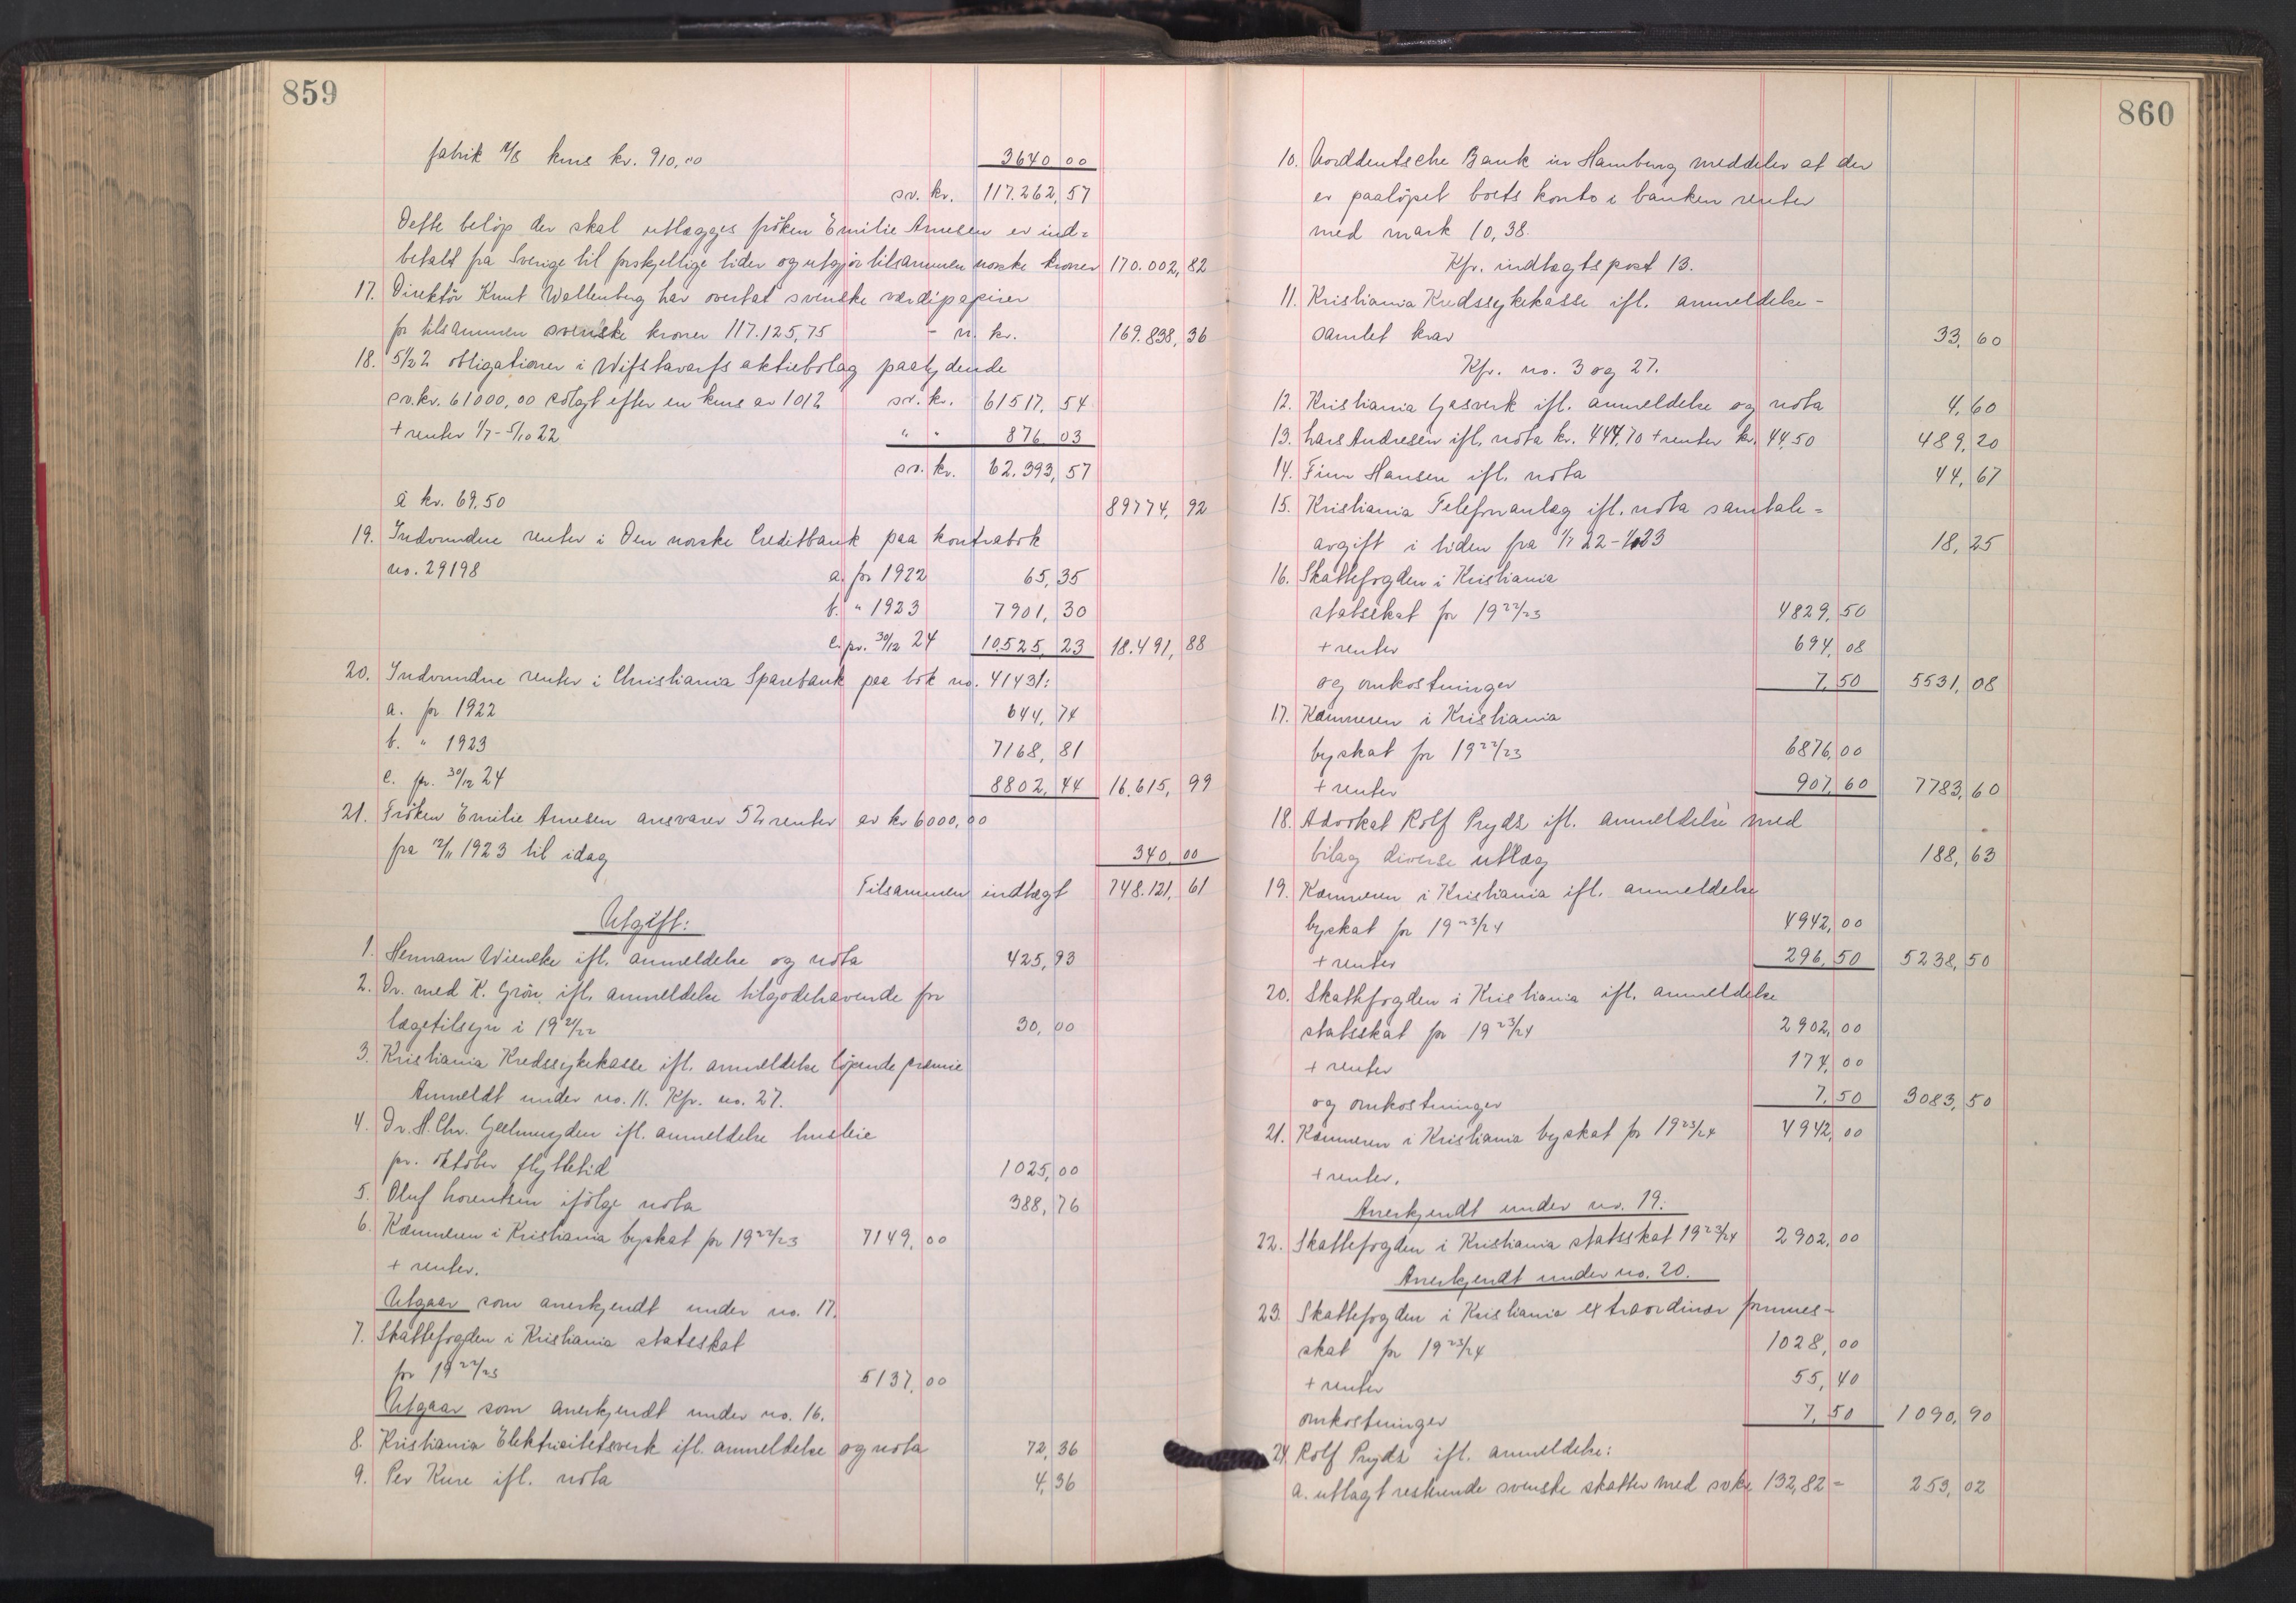 859
fabrik A/S kurs kr. 910,00 3640 00
sv. kr. 117.262,57
Dette beløp der skal utlægges frøken Emilie Arnesen er ind=
betalt fra Sverige til forskjellige tider og utgjør tilsammen norske kroner 170.002,82
17. Direktør Knut Wallenberg har overtat svenske værdipapirer
for tilsammen svenske kroner 117.125,75 - n. kr. 169.838,36
18. 5½% obligationer i Wifstavarfs aktiebolag paalydende
sv.kr. 61000,00 solgt efter en kurs av 101% sv. kr. 61517,54
+ renter 1/7 - 5/10 22 " " 876 03
sv. kr. 62.393,57
à kr. 69,50 89774,92
19. Indvundne renter i Den norske Creditbank paa kontrabok
no. 29198 a. for 1922 65,35
b. " 1923 7901,30
c. pr. 30/12 24 10525,23 18.491,88
20. Indvundne renter i Christiania Sparebank paa bok no. 41431:
a. for 1922 644,74
b. " 1923 7168,81
c. pr. 30/12 24 8802,44 16.615,99
21. Frøken Emilie Arnesen ansvarer 5% renter av kr 6000,00
fra 12/11 1923 til idag 340,00
Tilsammen indtægt 748.121,61
Utgift:
1. Hermann Wiencke ifl. anmeldelse og nota 425,93
2. Dr. med K. Grøn, ifl. anmeldelse tilgodehavende for
lægetilsyn i 19 21/22 30,00
3. Kristiania Kredssykekasse ifl. anmeldelse løpende præmie
Anmeldt under no. 11. Kfr. no. 27.
4. Dr. H. Chr. Geelmuyden ifl. anmeldelse husleie
pr. oktober flyttetid 1025,00
5. Oluf Lorentsen ifølge nota 388,76
6. Kæmneren i Kristiania byskat for 19 22/23 7149,00
+ renter.
Utgaar som anerkjendt under no. 17.
7. Skattefogden i Kristiania statsskat
for 19 22/23 5137,00
Utgaar som anerkjendt under no. 16.
8. Kristiania Elektricitetsverk ifl. anmeldelse og nota 72,36
9. Per Kure ifl. nota 4,36
860
10. Norddeutsche Bank in Hamburg meddeler at der
er paaløpet boets konto i banken renter
med mark 10,38.
Kfr. indtægtspost 13.
11. Kristiania Kredssykekasse ifl. anmeldelse -
samlet krav 33,60
Kfr. no. 3 og 27.
12. Kristiania Gasverk ifl. anmeldelse og nota 4,60
13. Lars Andresen ifl. nota kr. 444,70 + renter kr. 44,50 489,20
14. Finn Hansen ifl. nota 44,67
15. Kristiania Telefonanlæg ifl. nota samtale=
avgift i tiden fra 1/7 22 - 23 18,25
16. Skattefogden i Kristiania
statsskat for 19 22/23 4829,50
+ renter 694,08
og omkostninger 7,50 5531,08
17. Kæmneren i Kristiania
byskat for 19 22/23 6876,00
+ renter 907,60 7783,60
18. Advokat Rolf Prydz ifl. anmeldelse med
bilag diverse utlæg 188,63
19. Kæmneren i Kristiania ifl. anmeldelse
byskat for 19 23/24 4942,00
+ renter 296,50 5238,50
20. Skattefogden i Kristiania ifl. anmeldelse
statsskat for 19 23/24 2902,00
+ renter 174,00
og omkostninger 7,50 3083,50
21. Kæmneren i Kristiania byskat for 19 23/24 4942,00
+ renter.
Anerkjendt under no. 19.
22. Skattefogden i Kristiania statsskat 19 23/24 2902,00
Anerkjendt under no. 20.
23. Skattefogden i Kristiania extraordinær formues-
skat for 19 23/24 1028,00
+ renter 55,40
omkostninger 7,50 1090,90
24 Rolf Prydz ifl. anmeldelse:
a. utlagt resterende svenske skatter med sv kr 132,82 = 253,02